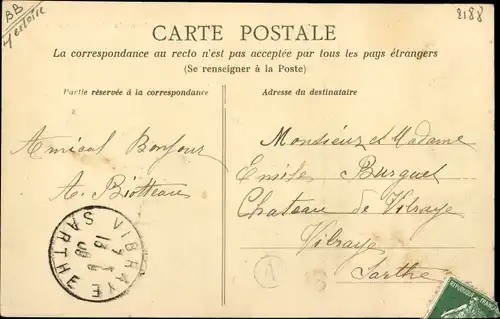 BB
8188
CARTE POSTALE
La correspondance au recto n'est pas acceptée par tous les pays étrangers
(Se renseigner à la Poste)
Partie réservée à la correspondance
Adresse du destinataire
Amical Bonjour
A. Biotteau
Monsieur et Madame
Emile Burguet
Chateau de Vibraye
Vibraye
Sarthe
VIBRAYE
SARTHE